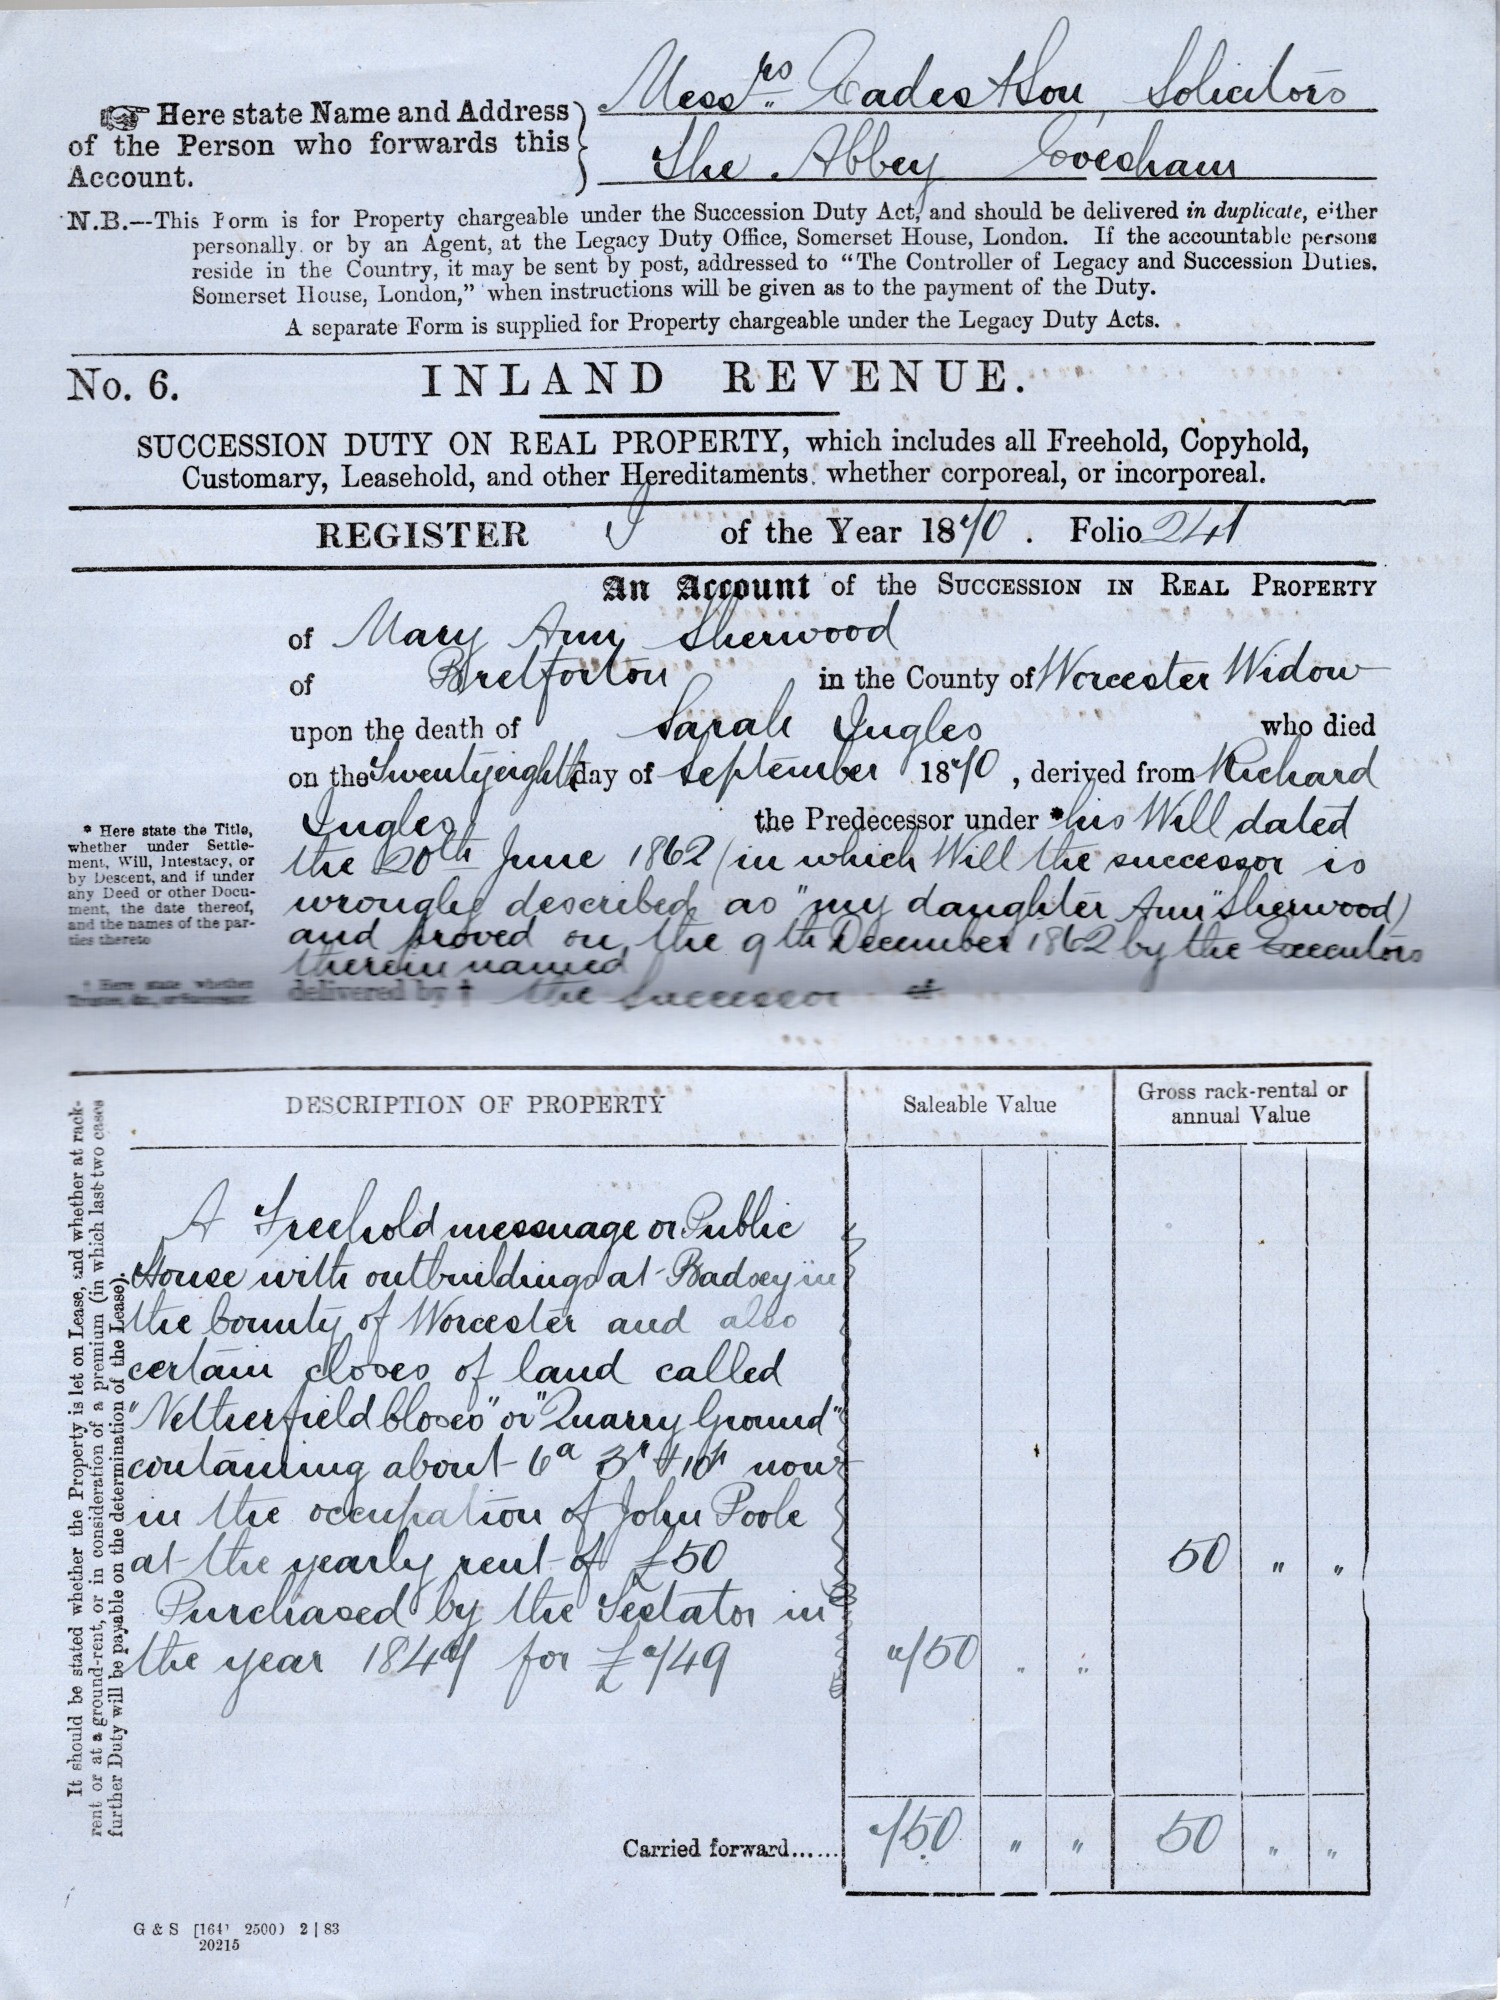 Messrs. Eades & Son Solicitors
☞ Here state Name and Address
of the Person who forwards this
Account.
The Abbey Evesham
N.B.—This Form is for Property chargeable under the Succession Duty Act, and should be delivered in duplicate, either
personally or by an Agent, at the Legacy Duty Office, Somerset House, London. If the accountable persons
reside in the Country, it may be sent by post, addressed to "The Controller of Legacy and Succession Duties,
Somerset House, London," when instructions will be given as to the payment of the Duty.
A separate Form is supplied for Property chargeable under the Legacy Duty Acts.
No. 6. INLAND REVENUE.
SUCCESSION DUTY ON REAL PROPERTY, which includes all Freehold, Copyhold,
Customary, Leasehold, and other Hereditaments, whether corporeal, or incorporeal.
REGISTER I of the Year 1870. Folio 241
An Account of the SUCCESSION IN REAL PROPERTY
of Mary Ann Sherwood
of Bretforton in the County of Worcester Widow
upon the death of Sarah Ingles who died
on the Twentyeighth day of September 1870, derived from Richard
Ingles the Predecessor under * his Will dated
the 20th June 1862 (in which Will the successor is
wrongly described as "my daughter Ann" Sherwood)
and proved on the 9th December 1862 by the Executors
therein named
delivered by † the Successor of
* Here state the Title,
whether under Settle-
ment, Will, Intestacy, or
by Descent, and if under
any Deed or other Docu-
ment, the date thereof,
and the names of the par-
ties thereto
† Here state whether
DESCRIPTION OF PROPERTY Saleable Value Gross rack-rental or
annual Value
It should be stated whether the Property is let on Lease, and whether at rack-
rent or at a ground-rent, or in consideration of a premium (in which last two cases
further Duty will be payable on the determination of the Lease).
A Freehold messuage or Public
House with outbuildings at Badsey in
the County of Worcester and also
certain closes of land called
"Netherfield Closes" or "Quarry Ground"
containing about 6a 3r & 10p now
in the occupation of John Poole
at the yearly rent of £50 50 " "
Purchased by the Testator in
the year 1847 for £749 750 " "
Carried forward...... 750 " " 50 " "
G & S [164' 2500) 2 | 83
20215